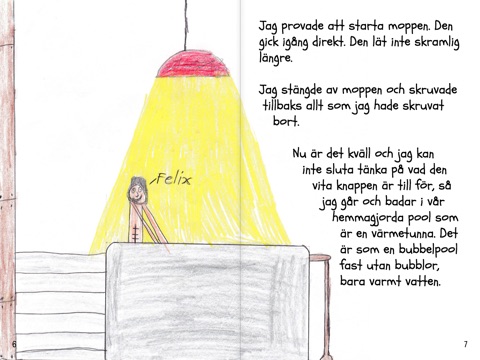 Felix
6
Jag provade att starta moppen. Den
gick igång direkt. Den lät inte skramlig
längre.
Jag stängde av moppen och skruvade
tillbaks allt som jag hade skruvat
bort.
Nu är det kväll och jag kan
inte sluta tänka på vad den
vita knappen är till för, så
jag går och badar i vår
hemmagjorda pool som
är en värmetunna. Det
är som en bubbelpool
fast utan bubblor,
bara varmt vatten.
7